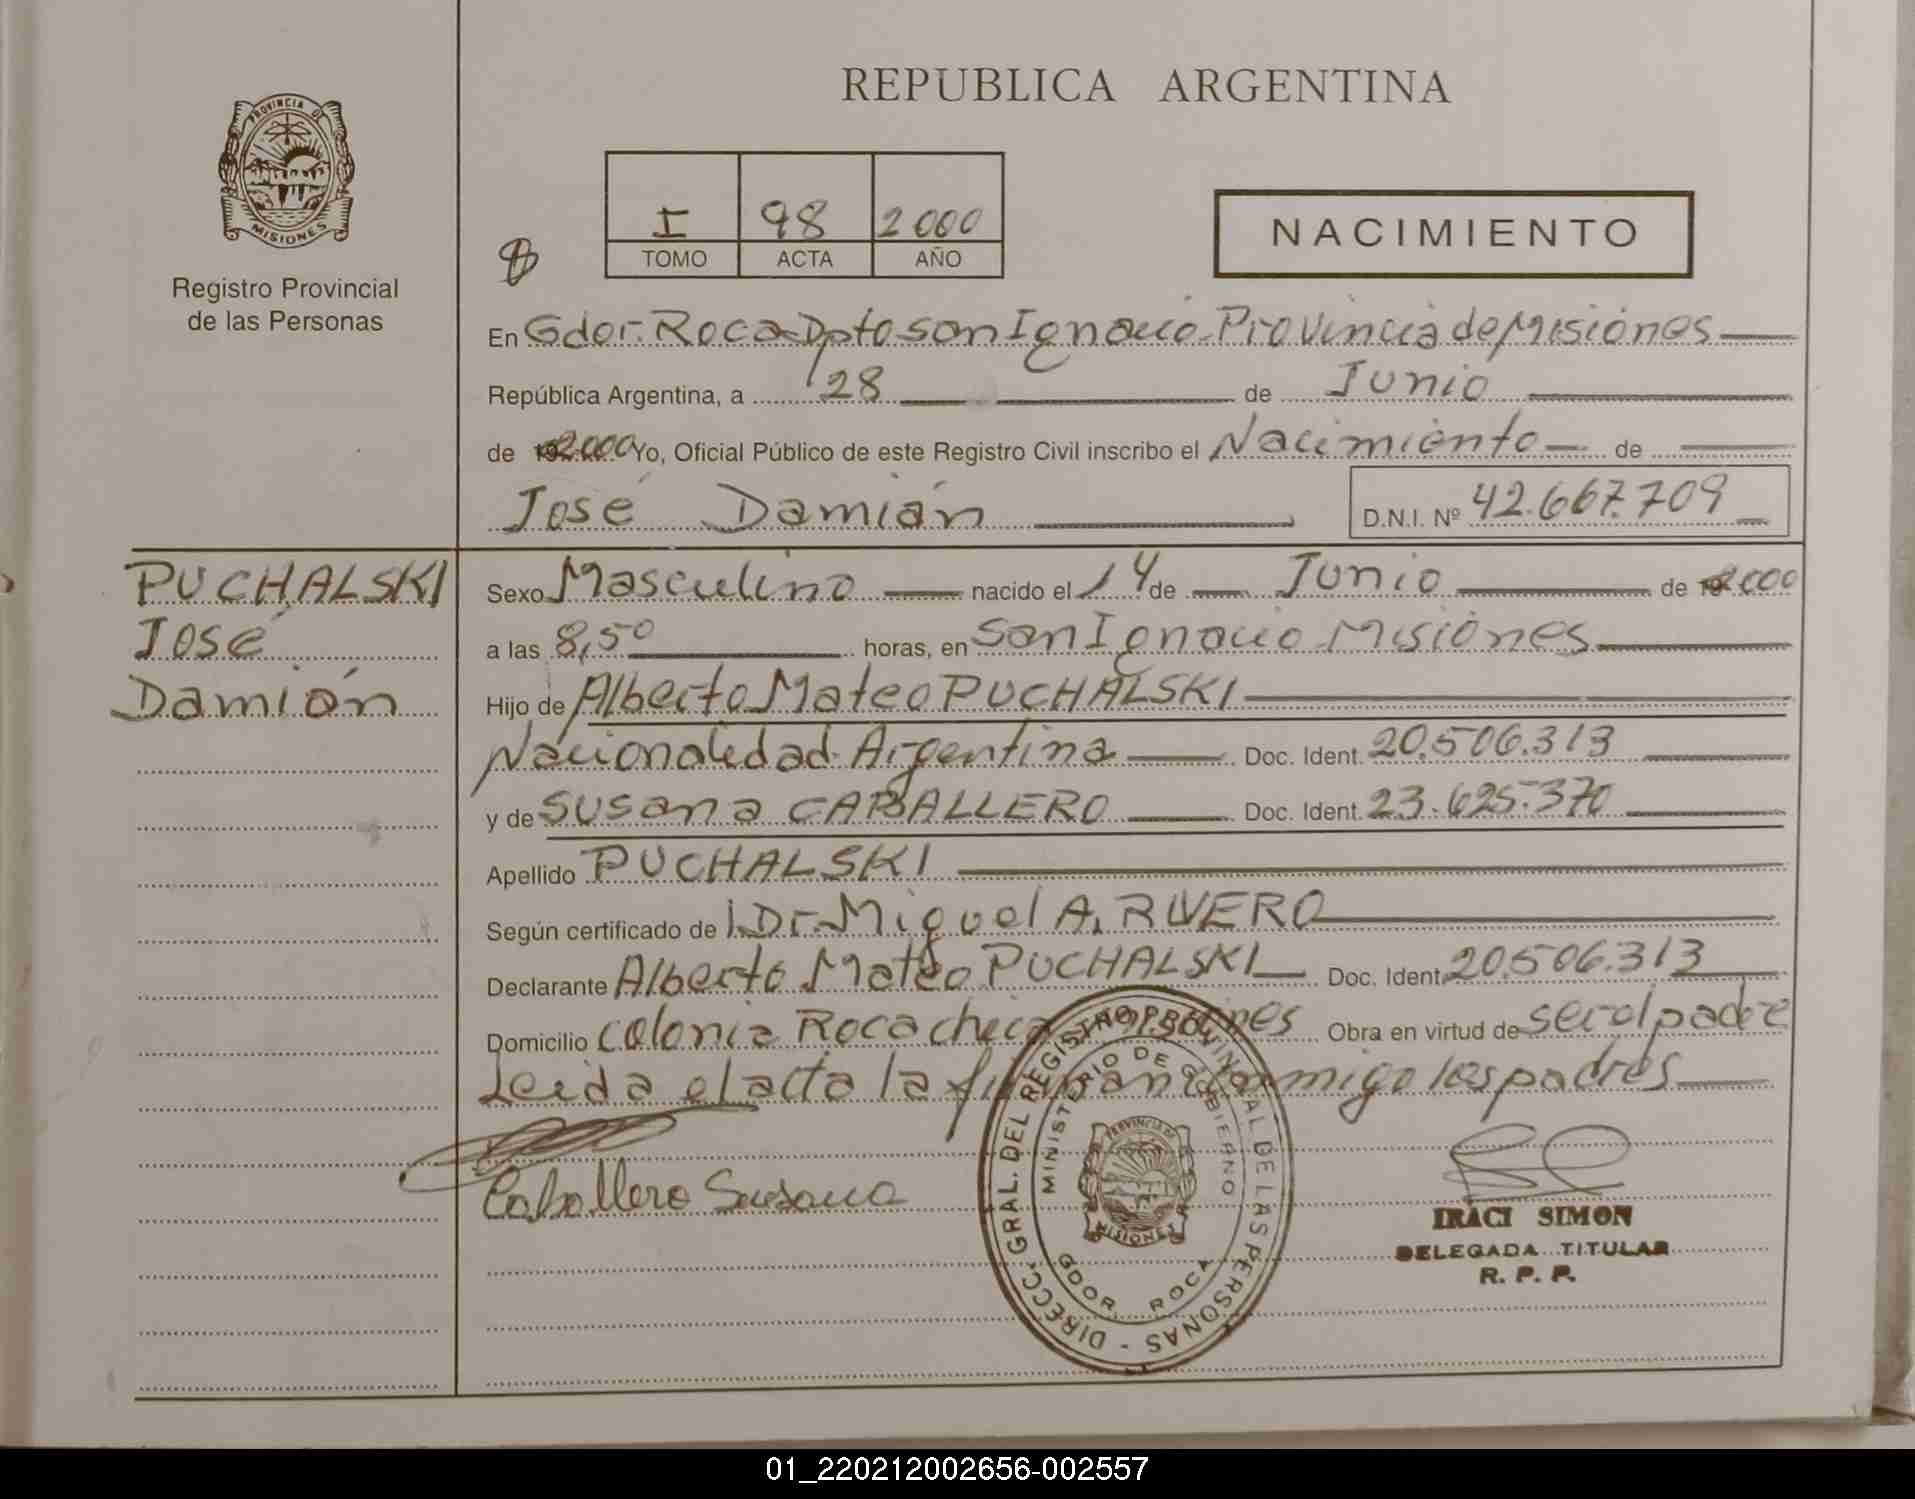 REPUBLICA ARGENTINA
PROVINCIA DE
MISIONES
Registro Provincial
de las Personas
I 98 2000
TOMO ACTA AÑO
NACIMIENTO
En Gdor. Roca Dpto san Ignacio Provincia de Misiones
República Argentina, a 28 de Junio
de 2000 Yo, Oficial Público de este Registro Civil inscribo el Nacimiento de
José Damián D.N.I. Nº 42.667.709
PUCHALSKI
José
Damián
Sexo Masculino nacido el 14 de Junio de 2000
a las 8,50 horas, en san Ignacio Misiones
Hijo de Alberto Mateo PUCHALSKI
Nacionalidad Argentina Doc. Ident. 20.506.313
y de Susana CABALLERO Doc. Ident. 23.625.370
Apellido PUCHALSKI
Según certificado de Dr. Miguel A. RIVERO
Declarante Alberto Mateo PUCHALSKI Doc. Ident. 20.506.313
Domicilio Colonia Roca chica Misiones Obra en virtud de ser el padre
Leida el acta la firman conmigo los padres
Caballero Susana
DIRECC. GRAL. DEL REGISTRO PROVINCIAL DE LAS PERSONAS -
MINISTERIO DE GOBIERNO
PROVINCIA DE
MISIONES
GDOR. ROCA
IRACI SIMON
DELEGADA TITULAR
R. P. P.
01_220212002656-002557